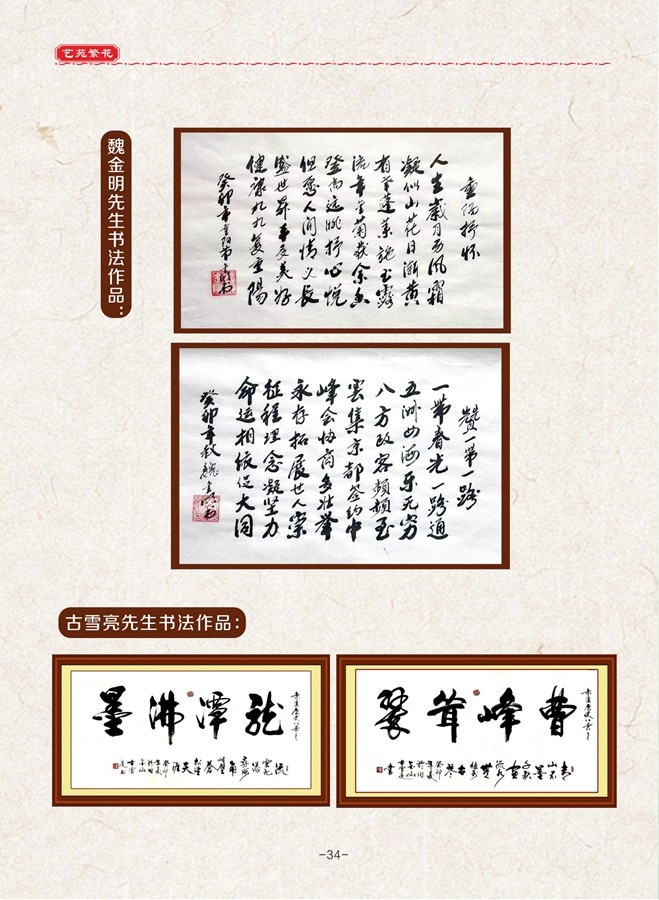 艺苑繁花
魏金明先生书法作品：
重阳抒怀
人生岁月多风霜
凝似山花日渐黄
流年金菊散余香
登高远眺抒心悦
但愿人间情义长
盛世昇平度美好
健康九九复重陽
癸卯年重阳节
赞一带一路
一带春光一路通
五洲四海乐无穷
八方政客频频至
雲集京都签约中
峰会协商多壮举
永存拓展世人崇
征程理念凝坚力
命运相依促大同
癸卯年秋魏金明书
古雪亮先生书法作品：
龙潭沸墨
曹峰耸翠
-34-